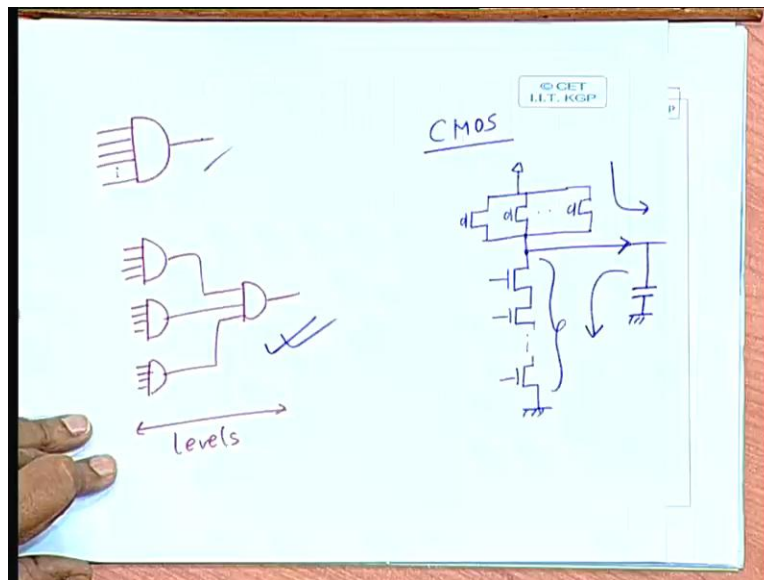 © CET
I.I.T. KGP
P
CMOS
levels